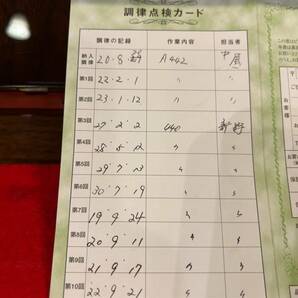 調律点検カード
調律の記録 作業内容 担当者
納入調律 20・8 A442
第1回 22・2・1 〃 〃
第2回 23・1・12 〃 〃
第3回 27・2・2 440
第4回 28・5・12 〃 〃
第5回 29・7・13 〃 〃
第6回 30・7・19 〃 〃
第7回 19・9・24 〃 〃
第8回 20・9・11 〃 〃
第9回 21・9・17 〃 〃
第10回 22・9・21 〃 〃